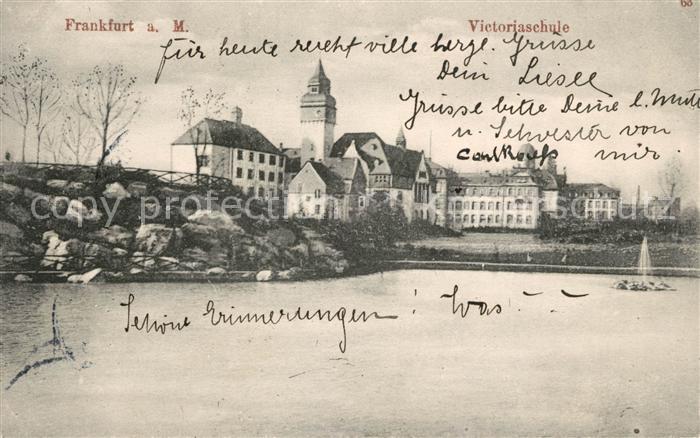 68
Frankfurt a. M. Victoriaschule
für heute recht viele herzl. Grüsse
Dein Liesel
Grüsse bitte Deine l. Mutter
u. Schwester von
mir.
Schöne Erinnerungen! Was
carthaus